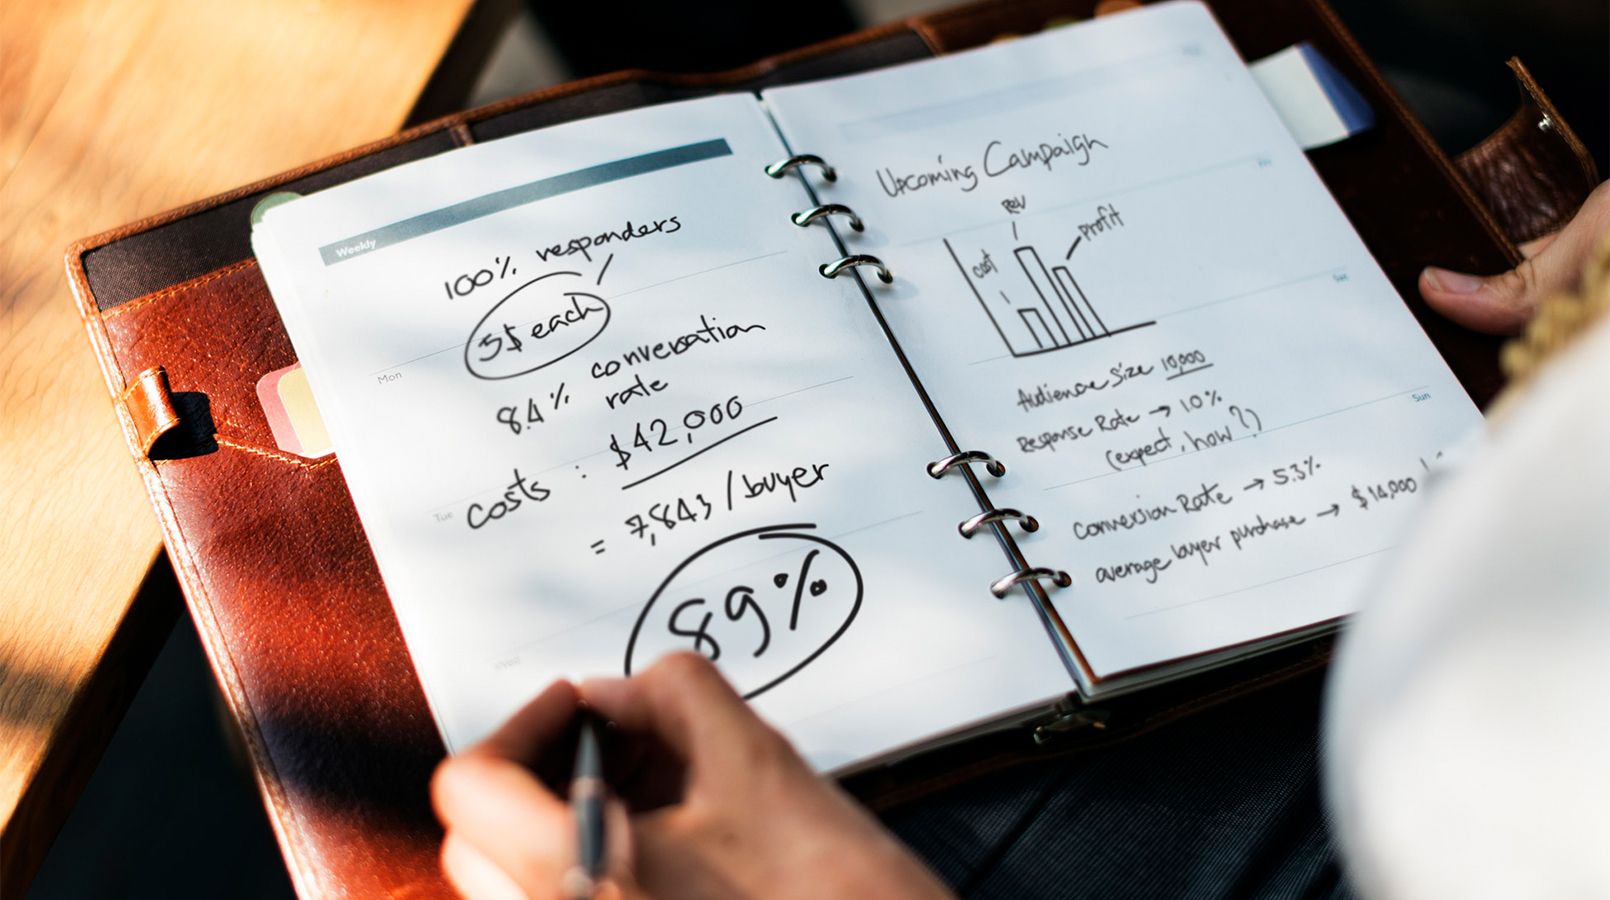 Weekly
100% responders
5$ each
8.4% conversation
rate
costs : $42,000
= 7,843 /buyer
89%
Mon
Tue
Upcoming Campaign
Rev
cost
profit
Audience Size 10,000
Response Rate → 1.0%
(expect, how?)
Conversion Rate → 5.3%
average buyer purchase → $14,000
Sun